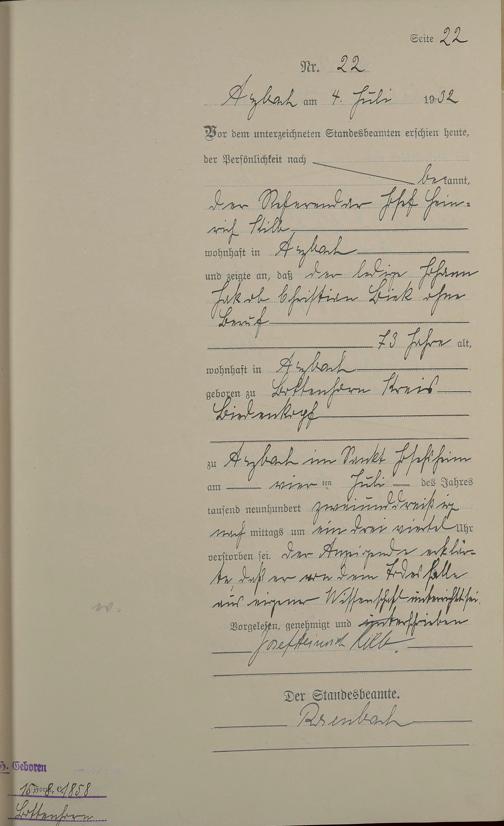 Seite 22
Nr. 22
Arzbach am 4. Juli 1932
Vor dem unterzeichneten Standesbeamten erschien heute,
der Persönlichkeit nach
bekannt,
der Referendar Josef Hein-
rich
wohnhaft in Arzbach
und zeigte an, daß der ledige Johann
Jakob Christian Biek ohne
Beruf
73 Jahre alt,
wohnhaft in Arzbach
geboren zu Bottenhorn Kreis
Biedenkopf
zu Arzbach im Sankt Josefsheim
am vier ten Juli des Jahres
tausend neunhundert zweiunddreißig
nach mittags um ein drei viertel Uhr
verstorben sei. Der Anzeigende erklär-
te daß er von dem Todesfalle
aus eigener Wissenschaft unterrichtet sei.
Vorgelesen, genehmigt und unterschrieben
Josef Heinrich
Der Standesbeamte.
Geboren
1858
Bottenhorn